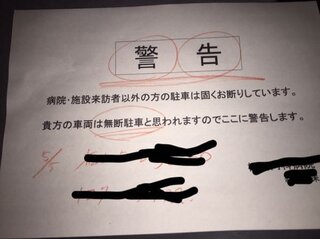 警告
病院・施設来訪者以外の方の駐車は固くお断りしています。
貴方の車両は無断駐車と思われますのでここに警告します。
5/1